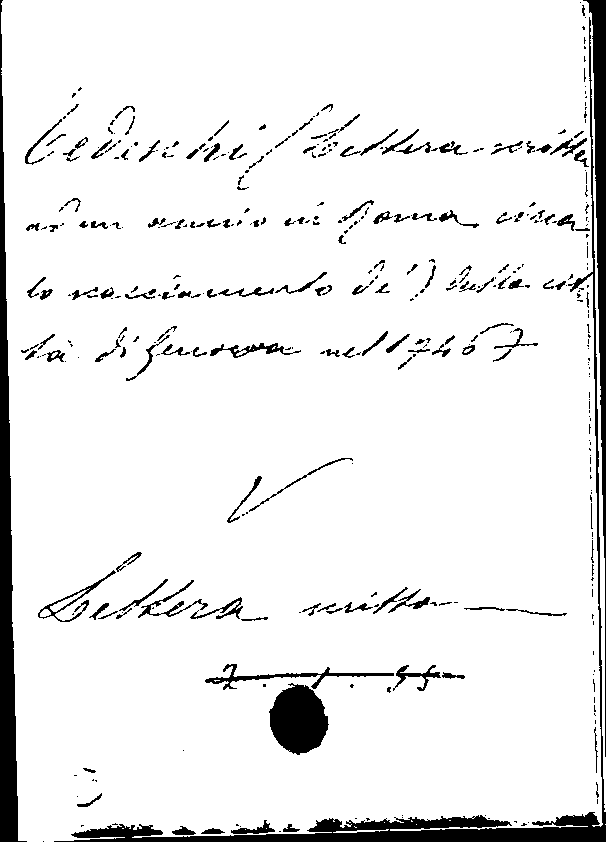 Tedeschi (Lettera scritta
ad un amico in Roma circa
lo scacciamento de') dalla cit
tà di Genova nel 1746
V
Lettera scritta
2. 1. 55